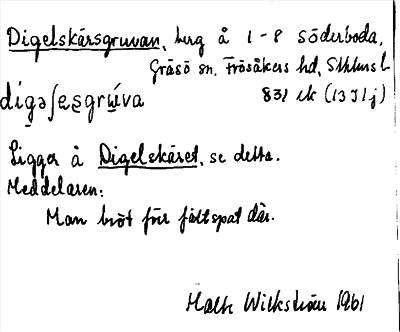 Digelskärsgruvan, berg å 1-8 Söderboda,
Gräsö sn, Frösåkers hd, Sthlms l.
digəʃæʂgrʉ́va 831 ek (13I1j)
Ligger å Digelskäret, se detta.
Meddelaren:
Man bröt förr fältspat där.
Wikström 1961